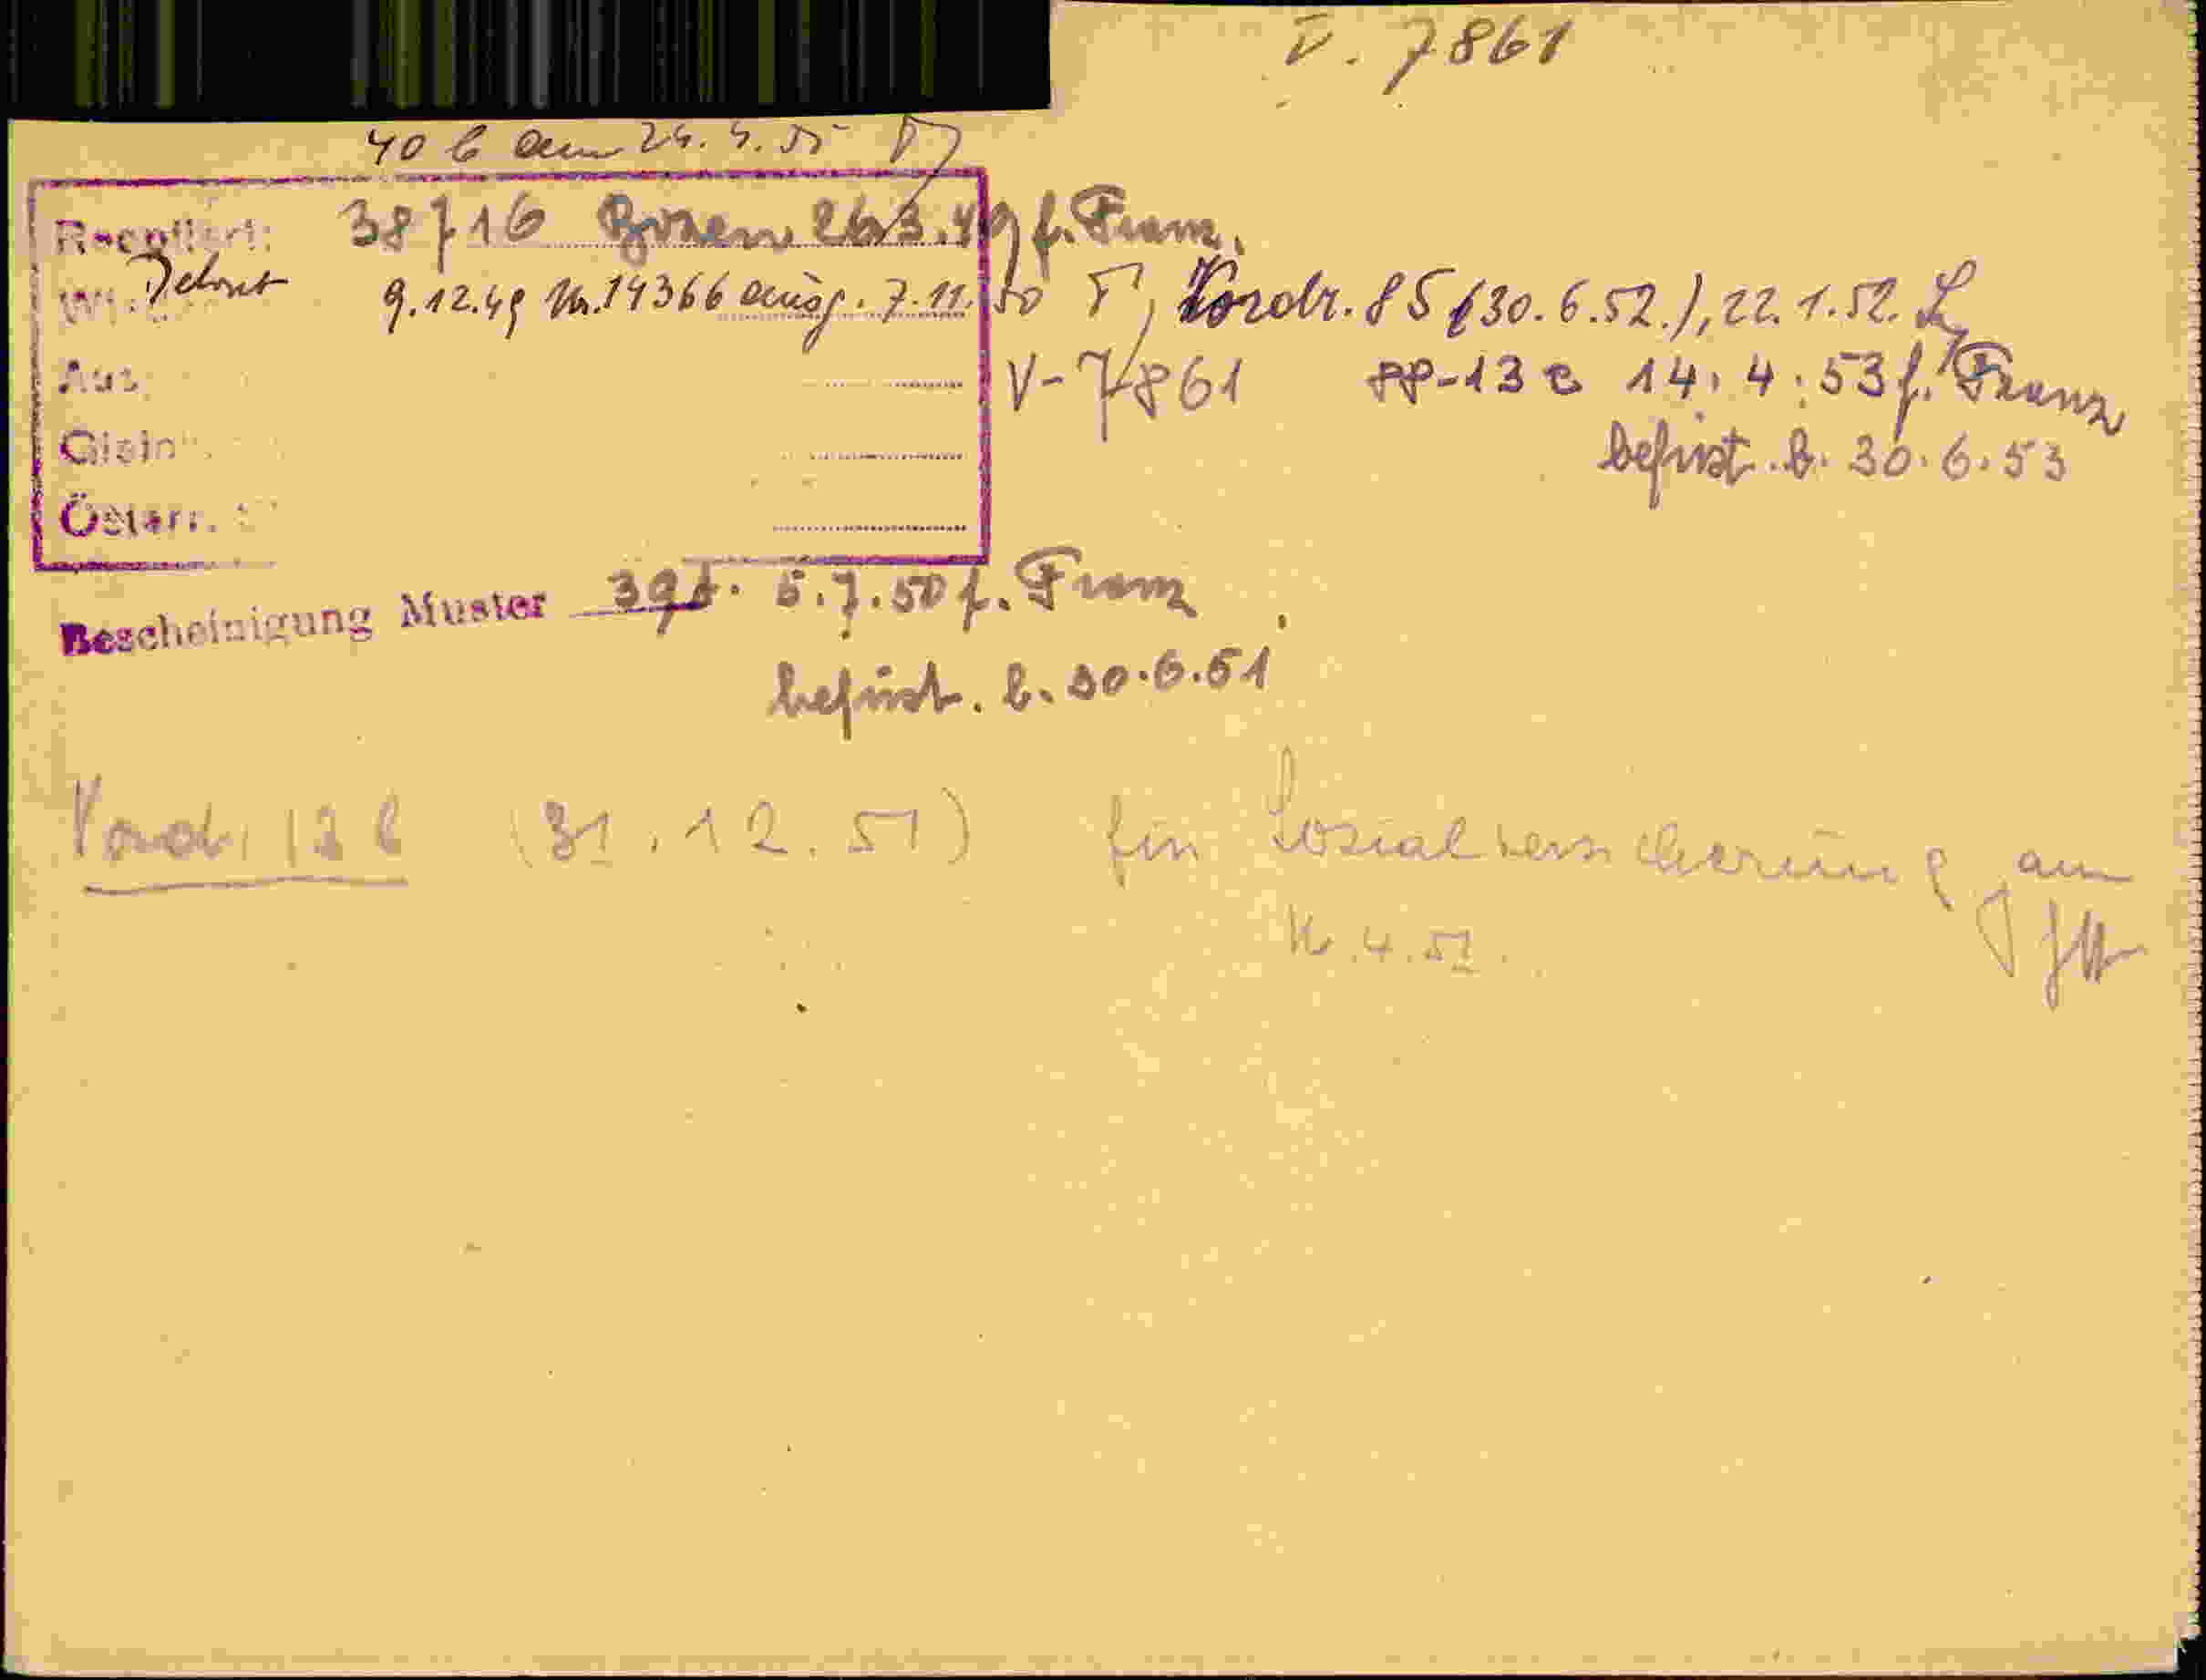 V. 7861
40 b am 24. 5. 55
Reoptiert: 38716 Bozen 26.3.49 f. Franz.
9.12.49 Nr. 14366 ausg. 7.11.50 Vordr. 85 (30.6.52.), 22.1.52. L
Aus
V-7861 88-13 e 14. 4. 53 f. Franz
Glein
befrist. b. 30.6.53
Österr.
Bescheinigung Muster 39d. 5.7.50 f. Franz
befrist. b. 30.6.51
Vordr. 13 b (31.12.51) für Sozialversicherung am
.4.52.